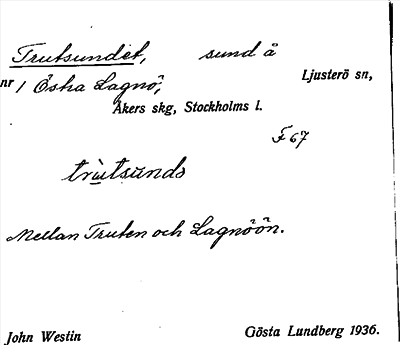 Trutsundet, sund å
Ljusterö sn,
nr 1 Östra Lagnö,
Åkers skg, Stockholms l.
F 67
trùtsúnds
Mellan Truten och Lagnöön.
John Westin Gösta Lundberg 1936.